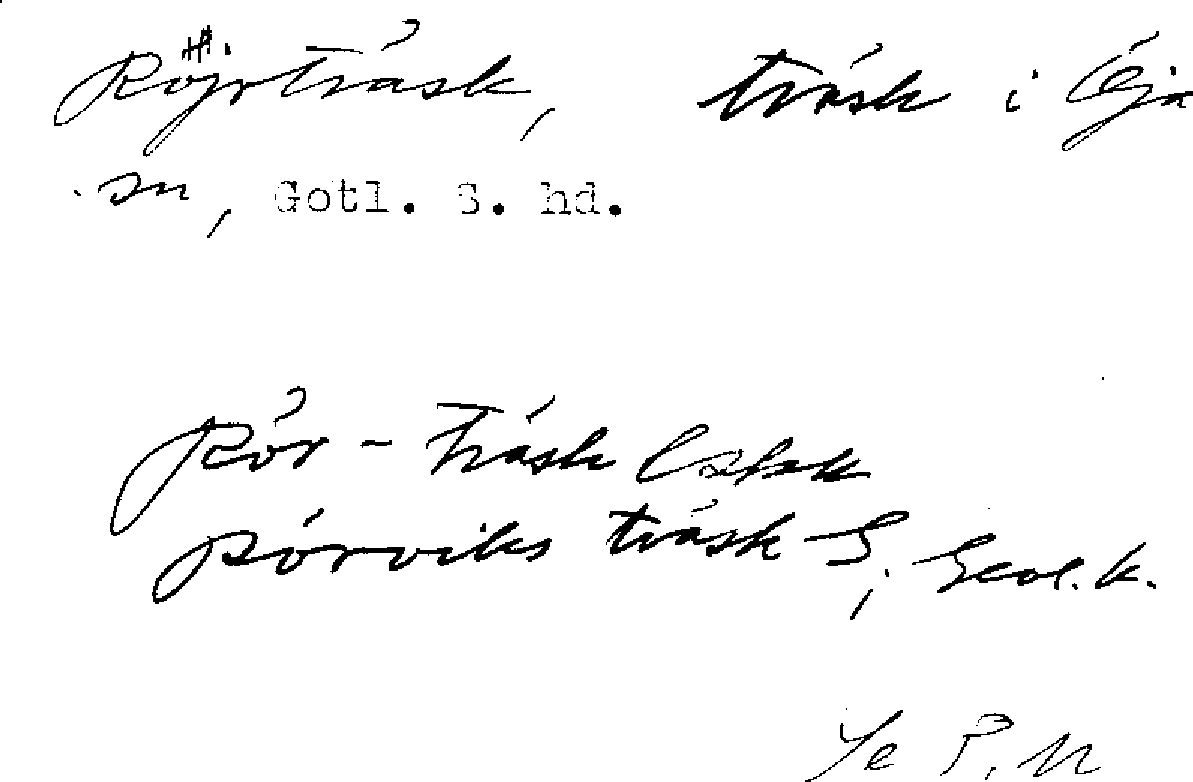 Röjrträsk, träsk i Öja
sn, Gotl. S. hd.
Rör-träsk
Rörviks träsk S, Geol.k.
Se P.M